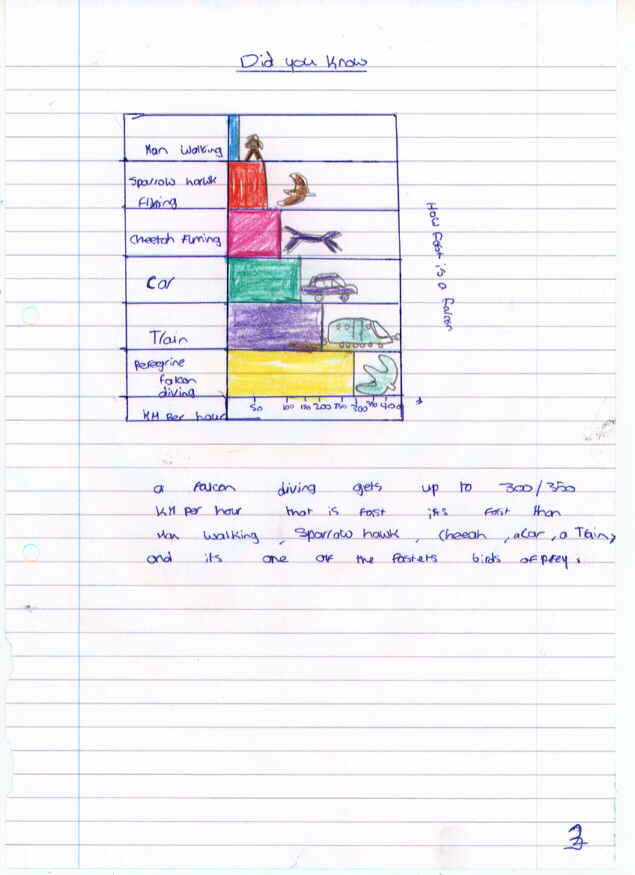 Did you know
Man Walking
Sparrow hawk
Flying
Cheetah Running
Car
Train
Peregrine
falcon
diving
KM Per hour
50 100 150 200 250 300 350 400
How fast is a falcon
a falcon diving gets up to 300/350
KM per hour that is fast its fast than
Man walking, Sparrow hawk, Cheeah, a Car, a Train,
and its one of the fastets birds of prey.
3